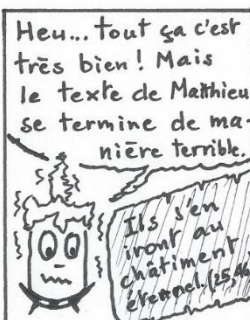 Heu... tout ça c'est
très bien ! Mais
le texte de Matthieu
se termine de ma-
nière terrible.
Ils s'en
iront au
châtiment
éternel. (25,46)